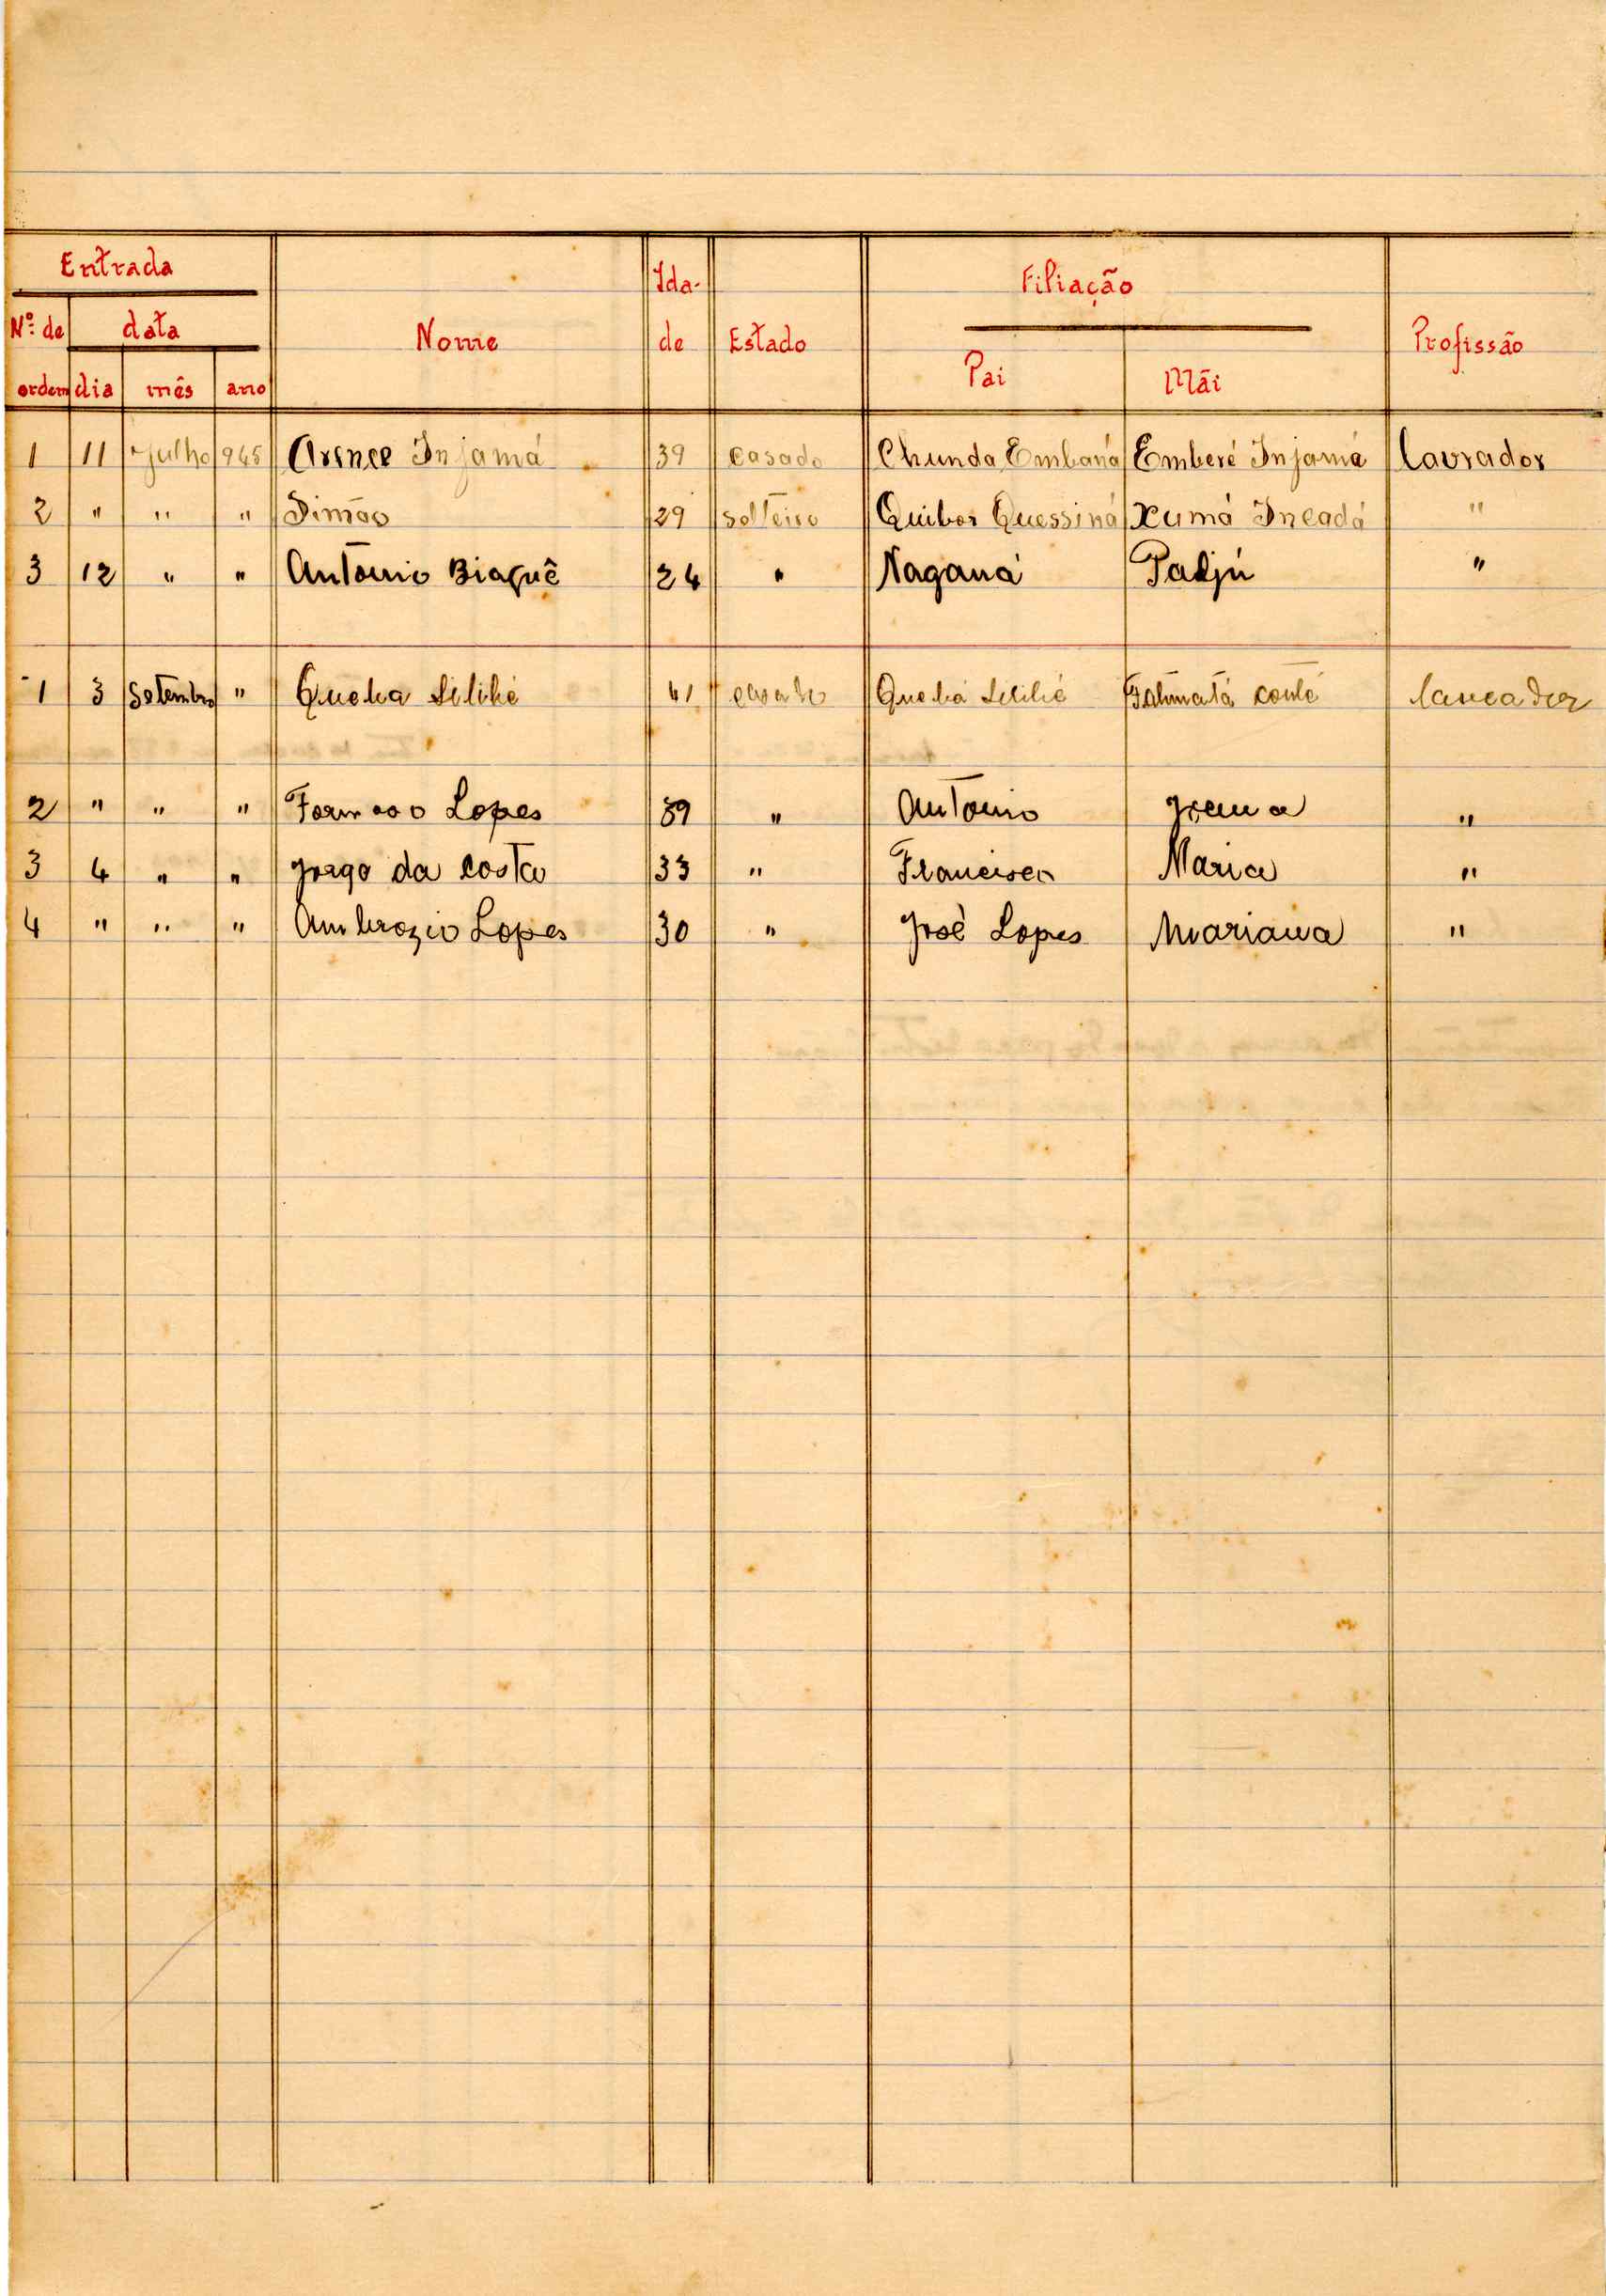 Entrada
Nº de ordem data Nome Idade Estado Filiação Profissão
dia mês ano Pai Mãi
1 11 Julho 945 Arence Injamá 39 casado Chunda Embaná Emberé Injamá lavrador
2 " " " Simão 29 solteiro Quibor Quessiná Xumá Incadá "
3 12 " " António Biaguê 24 " Naganá Padjú "
1 3 Setembro " Queba 41 casado Queba Fatimatá conté
2 " " " Lopes 39 " António "
3 4 " " Jorge da costa 33 " Francisco Maria "
4 " " " Ambrozio Lopes 30 " José Lopes Mariana "